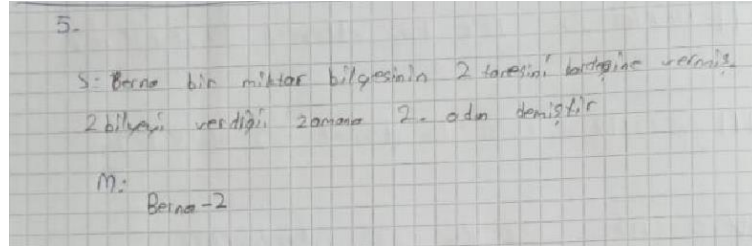 5.
S: Berna bir miktar bilyesinin 2 tanesini kardeşine vermiş.
2 bilyeyi verdiği zamana 2. adım demiştir
M:
Berna-2